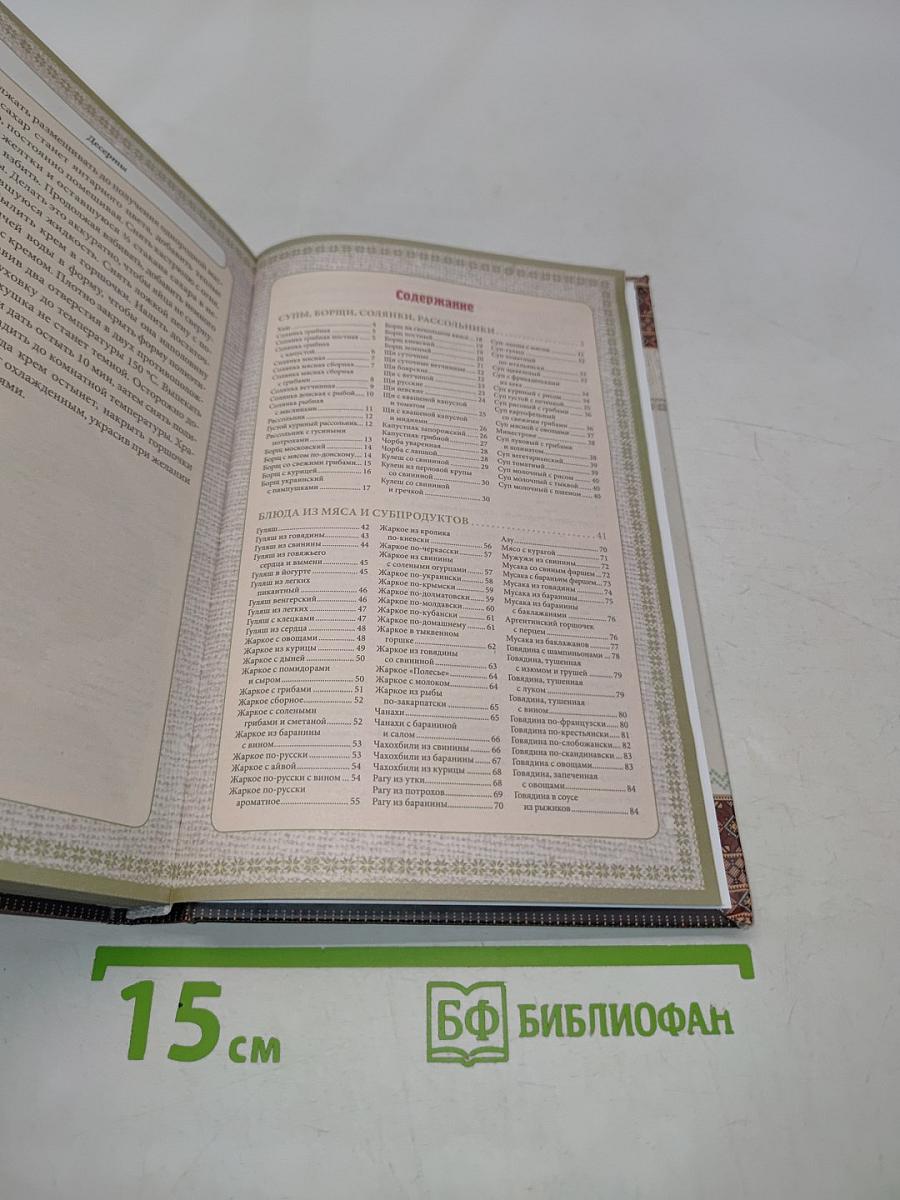 Десерты
жать размешивать до получения однородной
сахар станет янтарного цвета, добавить
, постоянно помешивая. Снять кастрюлю с огня.
желтки и оставшуюся ½ стакана сахара в
взбить. Продолжая взбивать, добавить в
Делать это аккуратно, чтобы яйца не
вшуюся жидкость. Снять ложкой пену с по-
ылить крем в горшочки. Налить в
чей воды в форму, чтобы она наполовину
с кремом. Плотно закрыть форму
вив два отверстия в двух противоположных
уховку до температуры 150 °C. Выпекать
кушка не станет темной. Осторожно до-
и дать остыть 10 мин, затем снять
адить до комнатной температуры. Хра-
да крем остынет, накрыть горшочки
охлажденным, украсив при желании
Содержание
СУПЫ, БОРЩИ, СОЛЯНКИ, РАССОЛЬНИКИ
Солянка грибная
Солянка грибная постная
Солянка грибная
с капустой 6
Солянка мясная 7
Солянка мясная сборная 7
Солянка мясная сборная
с грибами 8
Солянка ветчинная 9
Солянка донская с рыбой 10
Солянка рыбная
с маслинами 11
Рассольник 12
Густой куриный рассольник 12
Рассольник с гусиными
потрохами 13
Борщ московский 14
Борщ с мясом по-донскому 14
Борщ со свежими грибами 15
Борщ с курицей 16
Борщ украинский
с пампушками 17
Борщ на свекольном квасе 18
Борщ постный
Борщ киевский 19
Борщ зеленый
Щи суточные 20
Щи суточные ветчинные 21
Щи боярские 22
Щи с ветчиной
Щи русские 23
Щи невские
Щи с квашеной капустой
и томатом 24
Щи с квашеной капустой
и мидиями 25
Капустняк запорожский 26
Капустняк грибной 27
Чорба уваренная 28
Чорба с лапшой 28
Кулеш со свининой 29
Кулеш из перловой крупы
со свининой 30
Кулеш со свининой
и гречкой 30
Суп томатный
Суп куриный с рисом 34
Суп густой с печенкой 35
Суп рисовый с грибами
Суп картофельный
со свежими грибами 36
Суп мясной с овощами 37
Минестроне 38
Суп луковый с грибами
Суп вегетарианский 39
Суп томатный 39
Суп молочный с рисом 40
Суп молочный с тыквой 40
Суп молочный с пшеном 40
БЛЮДА ИЗ МЯСА И СУБПРОДУКТОВ 41
Гуляш 42
Гуляш из говядины 43
Гуляш из свинины 44
Гуляш из говяжьего
сердца и вымени 45
Гуляш в йогурте 45
Гуляш из легких
пикантный 46
Гуляш венгерский 46
Гуляш из легких 47
Гуляш с клецками 47
Гуляш из сердца 48
Жаркое с овощами 48
Жаркое из курицы 49
Жаркое с дыней 50
Жаркое с помидорами
и сыром 50
Жаркое с грибами 51
Жаркое сборное 52
Жаркое с солеными
грибами и сметаной 52
Жаркое из баранины
с вином 53
Жаркое по-русски 53
Жаркое с айвой 54
Жаркое по-русски с вином 54
Жаркое по-русски
ароматное 55
Жаркое из кролика
по-киевски 56
Жаркое по-черкасски 57
Жаркое из свинины
с солеными огурцами 57
Жаркое по-украински 58
Жаркое по-крымски 59
Жаркое по-долматовски 59
Жаркое по-молдавски 60
Жаркое по-кубански 61
Жаркое по-домашнему 61
Жаркое в тыквенном
горшке 62
Жаркое из говядины
со свининой 63
Жаркое «Полесье» 64
Жаркое с молоком 64
Жаркое из рыбы
по-закарпатски 65
Чанахи 65
Чанахи с бараниной
и салом 66
Чахохбили из свинины 66
Чахохбили из баранины 67
Чахохбили из курицы 68
Рагу из утки 68
Рагу из потрохов 69
Рагу из баранины 70
Азу 70
Мясо с курагой 71
Мужужи из свинины 72
Мусака со свиным фаршем 72
Мусака с бараньим фаршем 73
Мусака из говядины 74
Мусака из баранины 75
Мусака из баранины
с баклажанами 76
Аргентинский горшочек
с перцем 76
Мусака из баклажанов 77
Говядина с шампиньонами 78
Говядина, тушенная
с изюмом и грушей 79
Говядина, тушенная
с луком 79
Говядина, тушенная
с вином 80
Говядина по-французски 80
Говядина по-крестьянски 81
Говядина по-слобожански 82
Говядина по-скандинавски 83
Говядина с овощами 83
Говядина, запеченная
с овощами 84
Говядина в соусе
из рыжиков 84
15 см
БФ БИБЛИОФАН